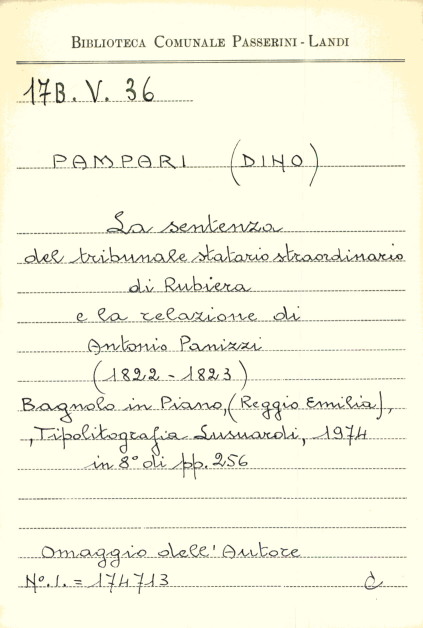 BIBLIOTECA COMUNALE PASSERINI - LANDI
17B. V. 36
PAMPARI (DINO)
La sentenza
del tribunale statario straordinario
di Rubiera
e la relazione di
Antonio Panizzi
(1822 - 1823)
Bagnolo in Piano, (Reggio Emilia),
, Tipolitografia Lusuardi, 1974
in 8° di pp. 256
Omaggio dell'Autore
N°. I. = 174713 C